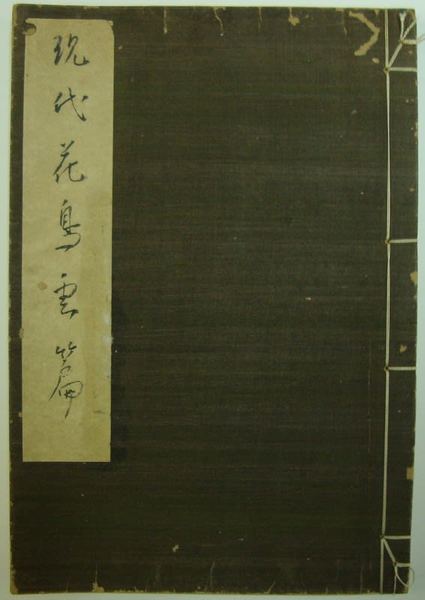 現代花鳥篇